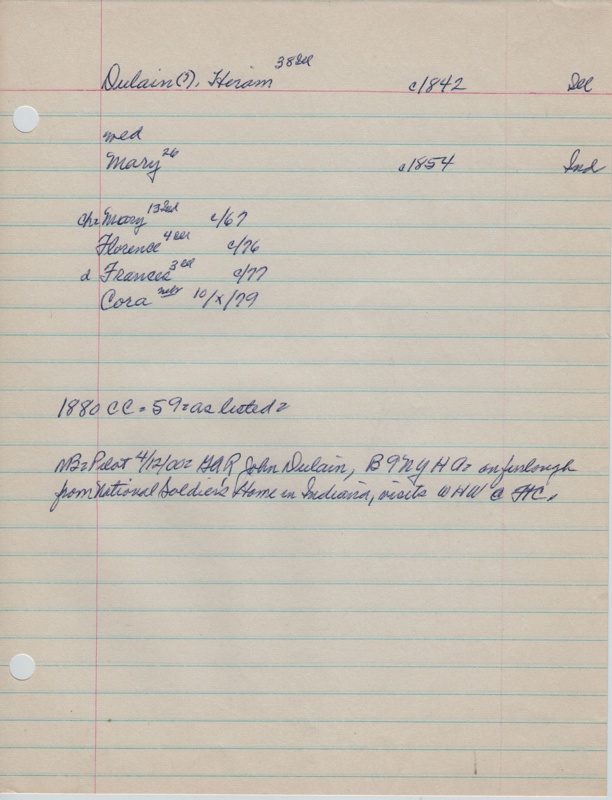 Dulain(?), Hiram 38 Del c1842 Del
med
Mary 26 c1854 Ind
ch= Mary 13 Del c/67
Florence 4 Del c/76
d Frances 3 c/77
Cora 10/x/79
1880 CC = 59 = as listed =
NB = Pilot 4/12/00 = GAR John Dulain, B 9 NY HA = on furlough
from National Soldier's Home in Indiana, visits WHW @ HC.